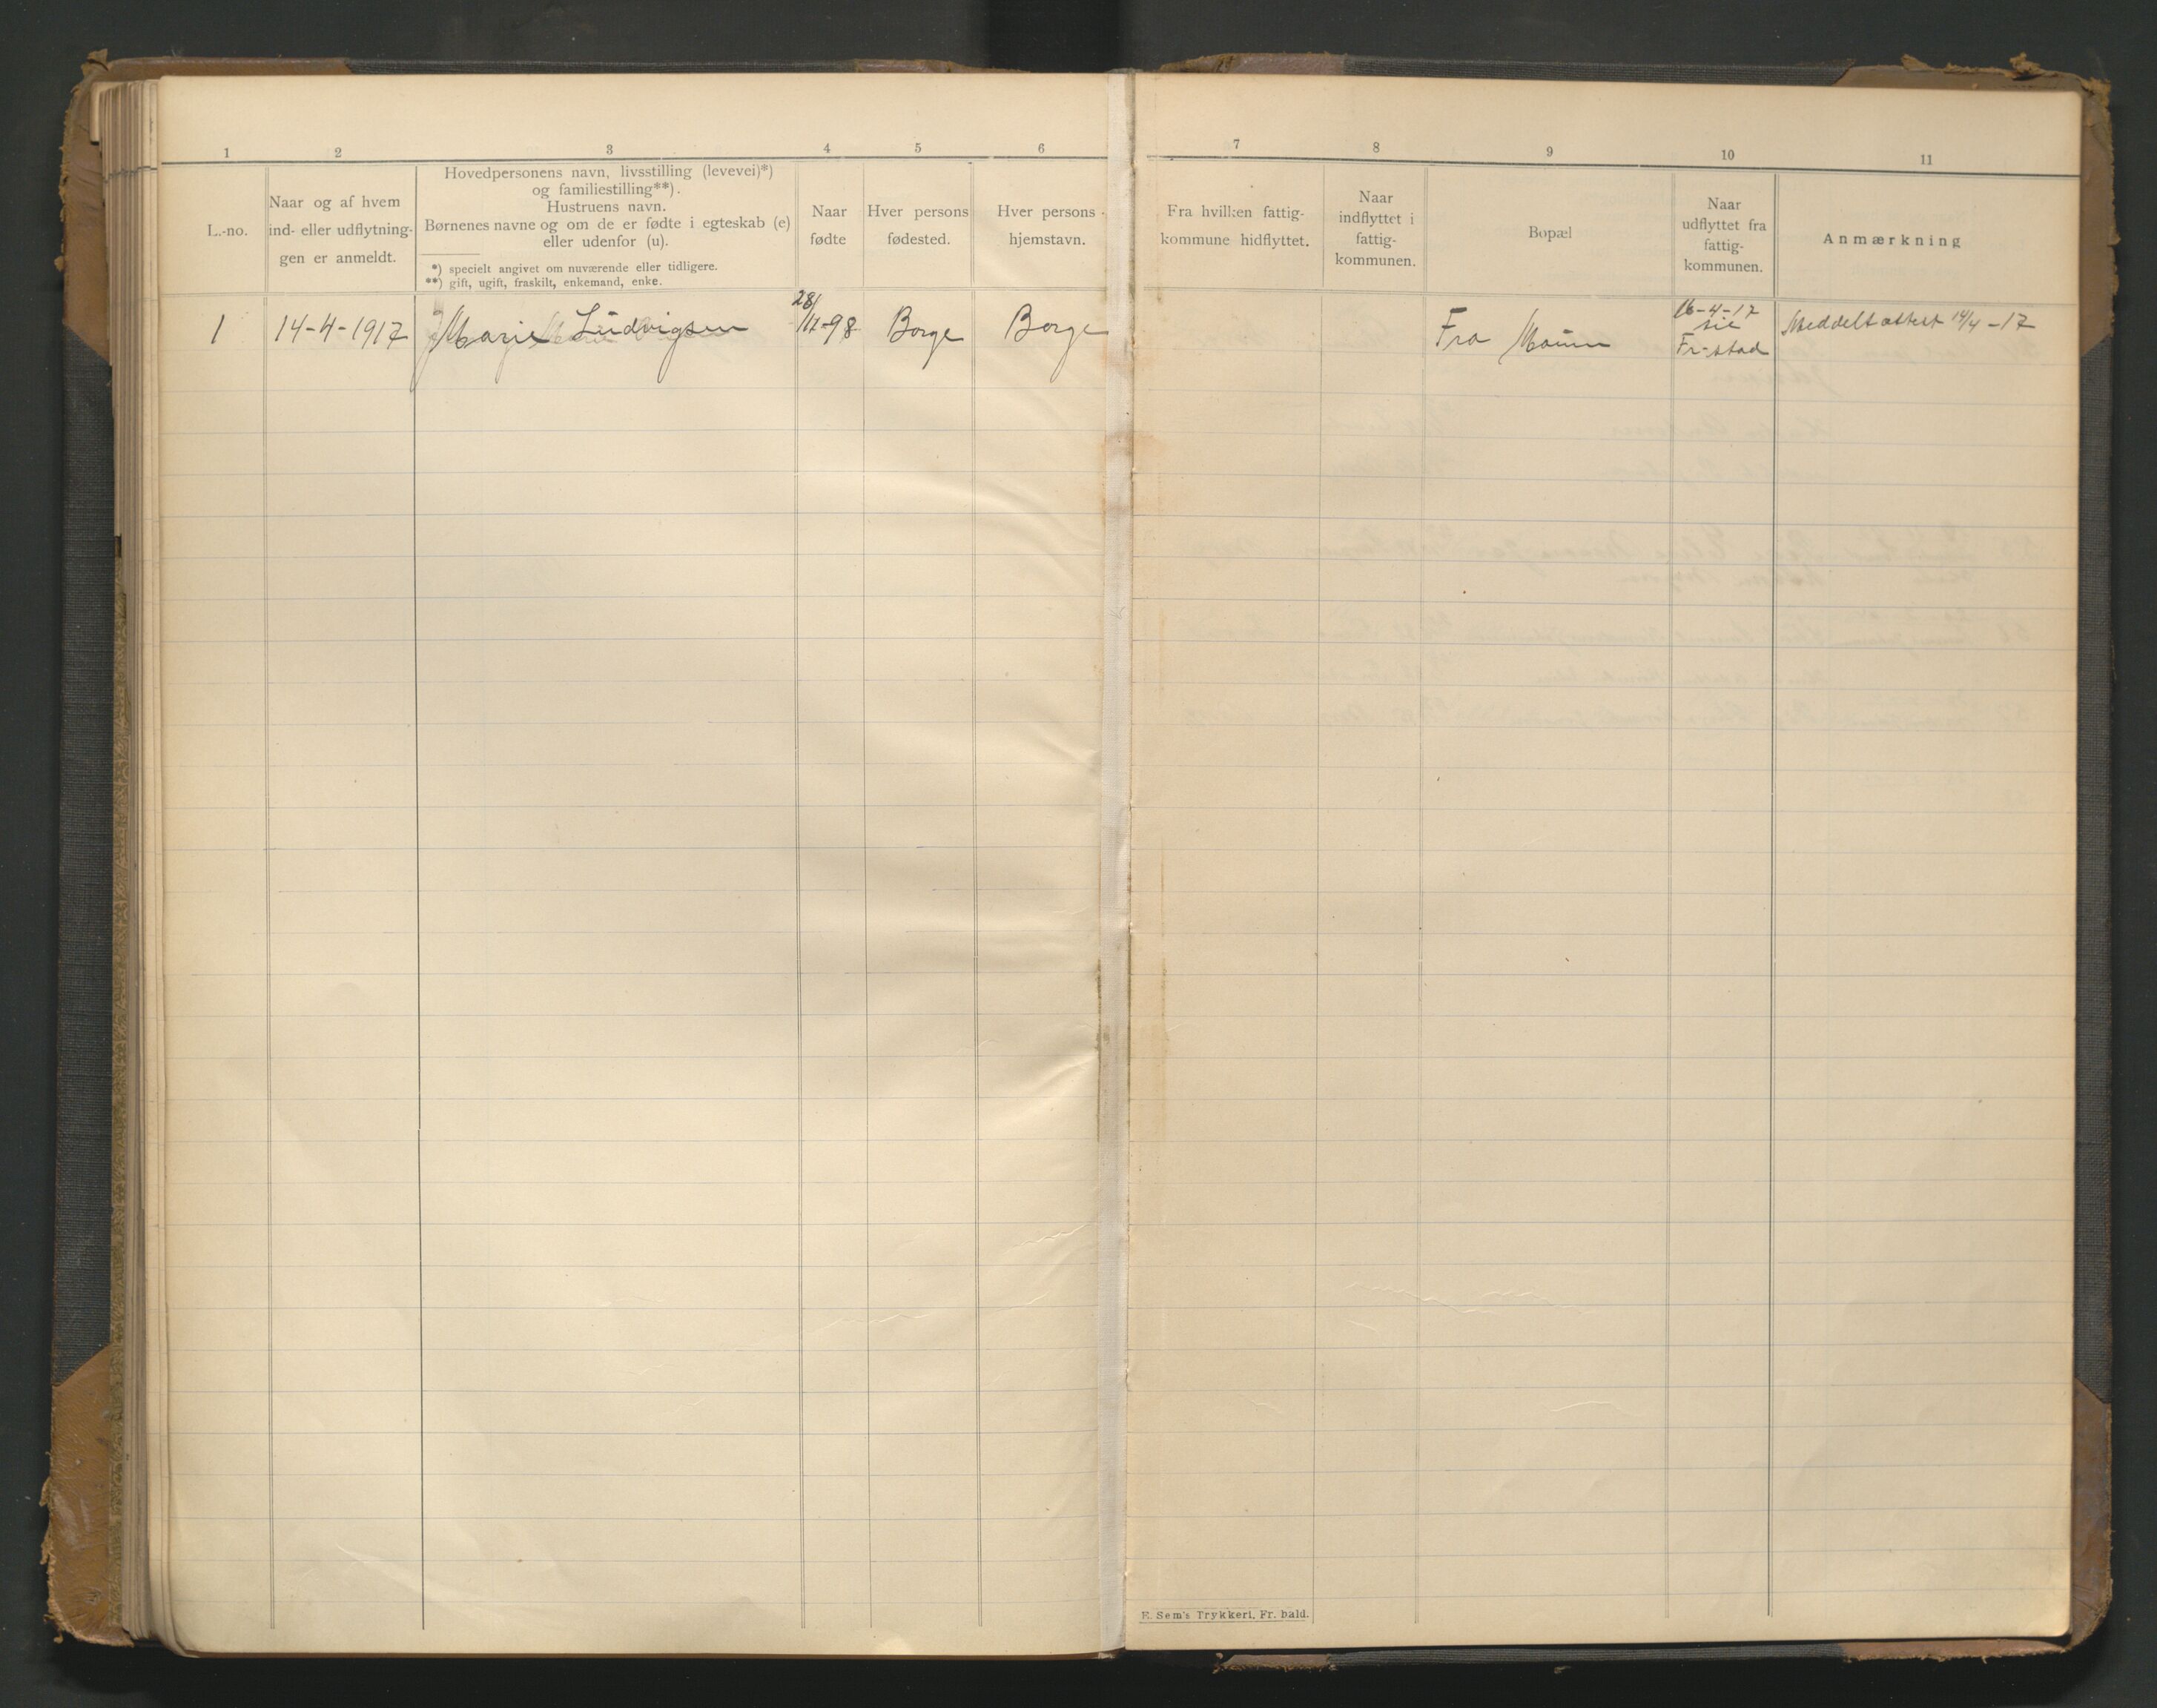 1 2 3 4 5 6 7 8 9 10 11
L.-no.
Naar og af hvem
ind- eller udflytning-
gen er anmeldt.
Hovedpersonens navn, livsstilling (levevei)*)
og familiestilling**).
Hustruens navn.
Børnenes navne og om de er fødte i egteskab (e)
eller udenfor (u).
*) specielt angivet om nuværende eller tidligere.
**) gift, ugift, fraskilt, enkemand, enke.
Naar
fødte
Hver persons
fødested.
Hver persons
hjemstavn.
Fra hvilken fattig-
kommune hidflyttet.
Naar
indflyttet i
fattig-
kommunen.
Bopæl
Naar
udflyttet fra
fattig-
kommunen.
Anmærkning
1 14-4-1917 Marie Ludvigsen 28/11-98 Borge Borge Fra 16-4-17
Fr-stad
Meddelt attest 14/4-17
E. Sem's Trykkeri, Fr. hald.